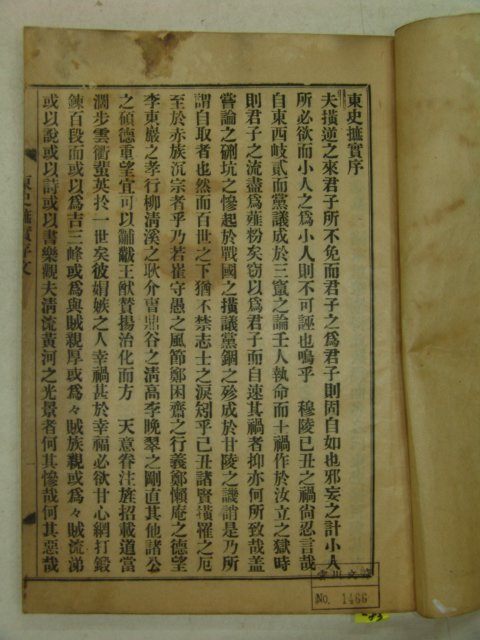 東史摭實序
夫橫逆之來君子所不免而君子之爲君子則固自如也邪妄之計小人
所必欲而小人之爲小人則不可誣也嗚乎 穆陵己丑之禍尙忍言哉
自東西岐貳而黨議成於三竄之論壬人執命而十禍作於汝立之獄時
則君子之流盡爲虀粉矣窃以爲君子而自速其禍者抑亦何所致哉盖
嘗論之硎坑之慘起於戰國之橫議黨錮之殄成於甘陵之譏誚是乃所
謂自取者也然而百世之下猶不禁志士之淚矧乎己丑諸賢橫罹之厄
至於赤族沉宗者乎乃若崔守愚之風節鄭困齋之行義鄭懶庵之德望
李東巖之孝行柳淸溪之耿介曺鼎谷之淸高李晚翠之剛直其他諸公
之碩德重望宜可以黼黻王猷贊揚治化而方 天意眷注旌招載道當
濶步雲衢蜚英於一世矣彼娼嫉之人幸禍甚於幸福必欲甘心網打鍛
鍊百段而或以爲吉三峰或爲與賊親厚或爲々賊族親或爲々賊流涕
或以說或以詩或以書樂觀夫淸流黃河之光景者何其慘哉何其惡哉
東史摭實序文
一
No. 1466